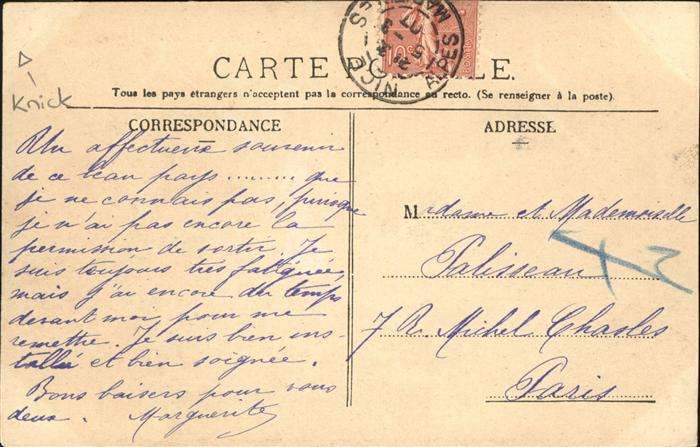 Knick
CARTE POSTALE.
Tous les pays étrangers n'acceptent pas la correspondance au recto. (Se renseigner à la poste).
CORRESPONDANCE
Un affectueux souvenir
de ce beau pays ......... que
je ne connais pas, puisque
je n'ai pas encore la
permission de sortir. Je
suis toujours très fatiguée,
mais j'ai encore du temps
devant moi, pour me
remettre. Je suis bien ins-
tallée et bien soignée.
Bons baisers pour vous
deux. Marguerite
ADRESSE
Madame et Mademoiselle
Palisseau
7 R. Michel Chasles
Paris